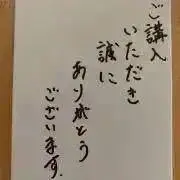 ご講入
いただき
誠に
ありがとう
ございます.